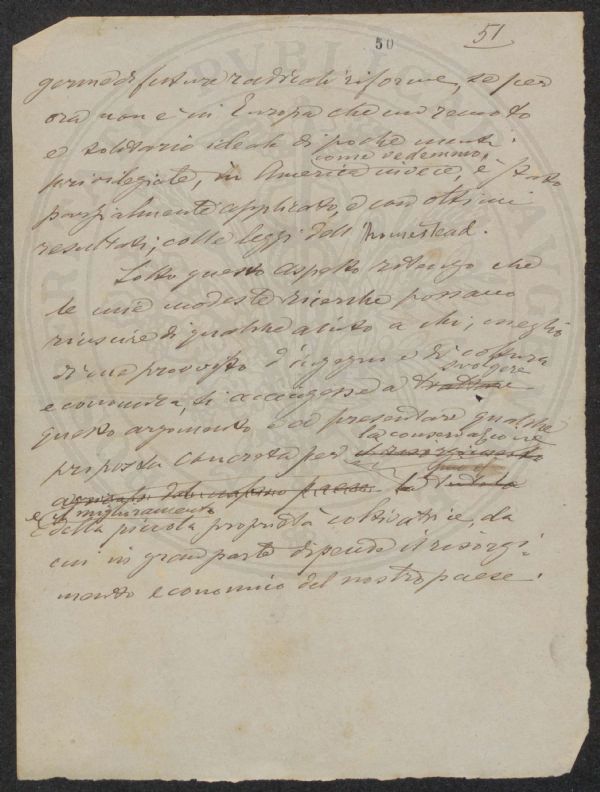 50
51
germe di future radicali riforme, se per
ora non è in Europa che un remoto
e solitario ideale di poche menti
privilegiate, in America invece, come vedemmo, è stato
parzialmente applicato, e con ottimi
resultati, colle leggi dell' homestead.
Sotto questo aspetto ritengo che
le mie modeste ricerche possano
riuscire di qualche aiuto a chi, meglio
di me provvisto d'ingegno e di coltura
economica, si accingesse a trattare svolgere
questo argomento e a presentare qualche
proposta concreta per il risorgimento la conservazione
agricolo del nostro paese. la tutela
e il miglioramento
della piccola proprietà coltivatrice, da
cui in gran parte dipende il risorgi-
mento economico del nostro paese.